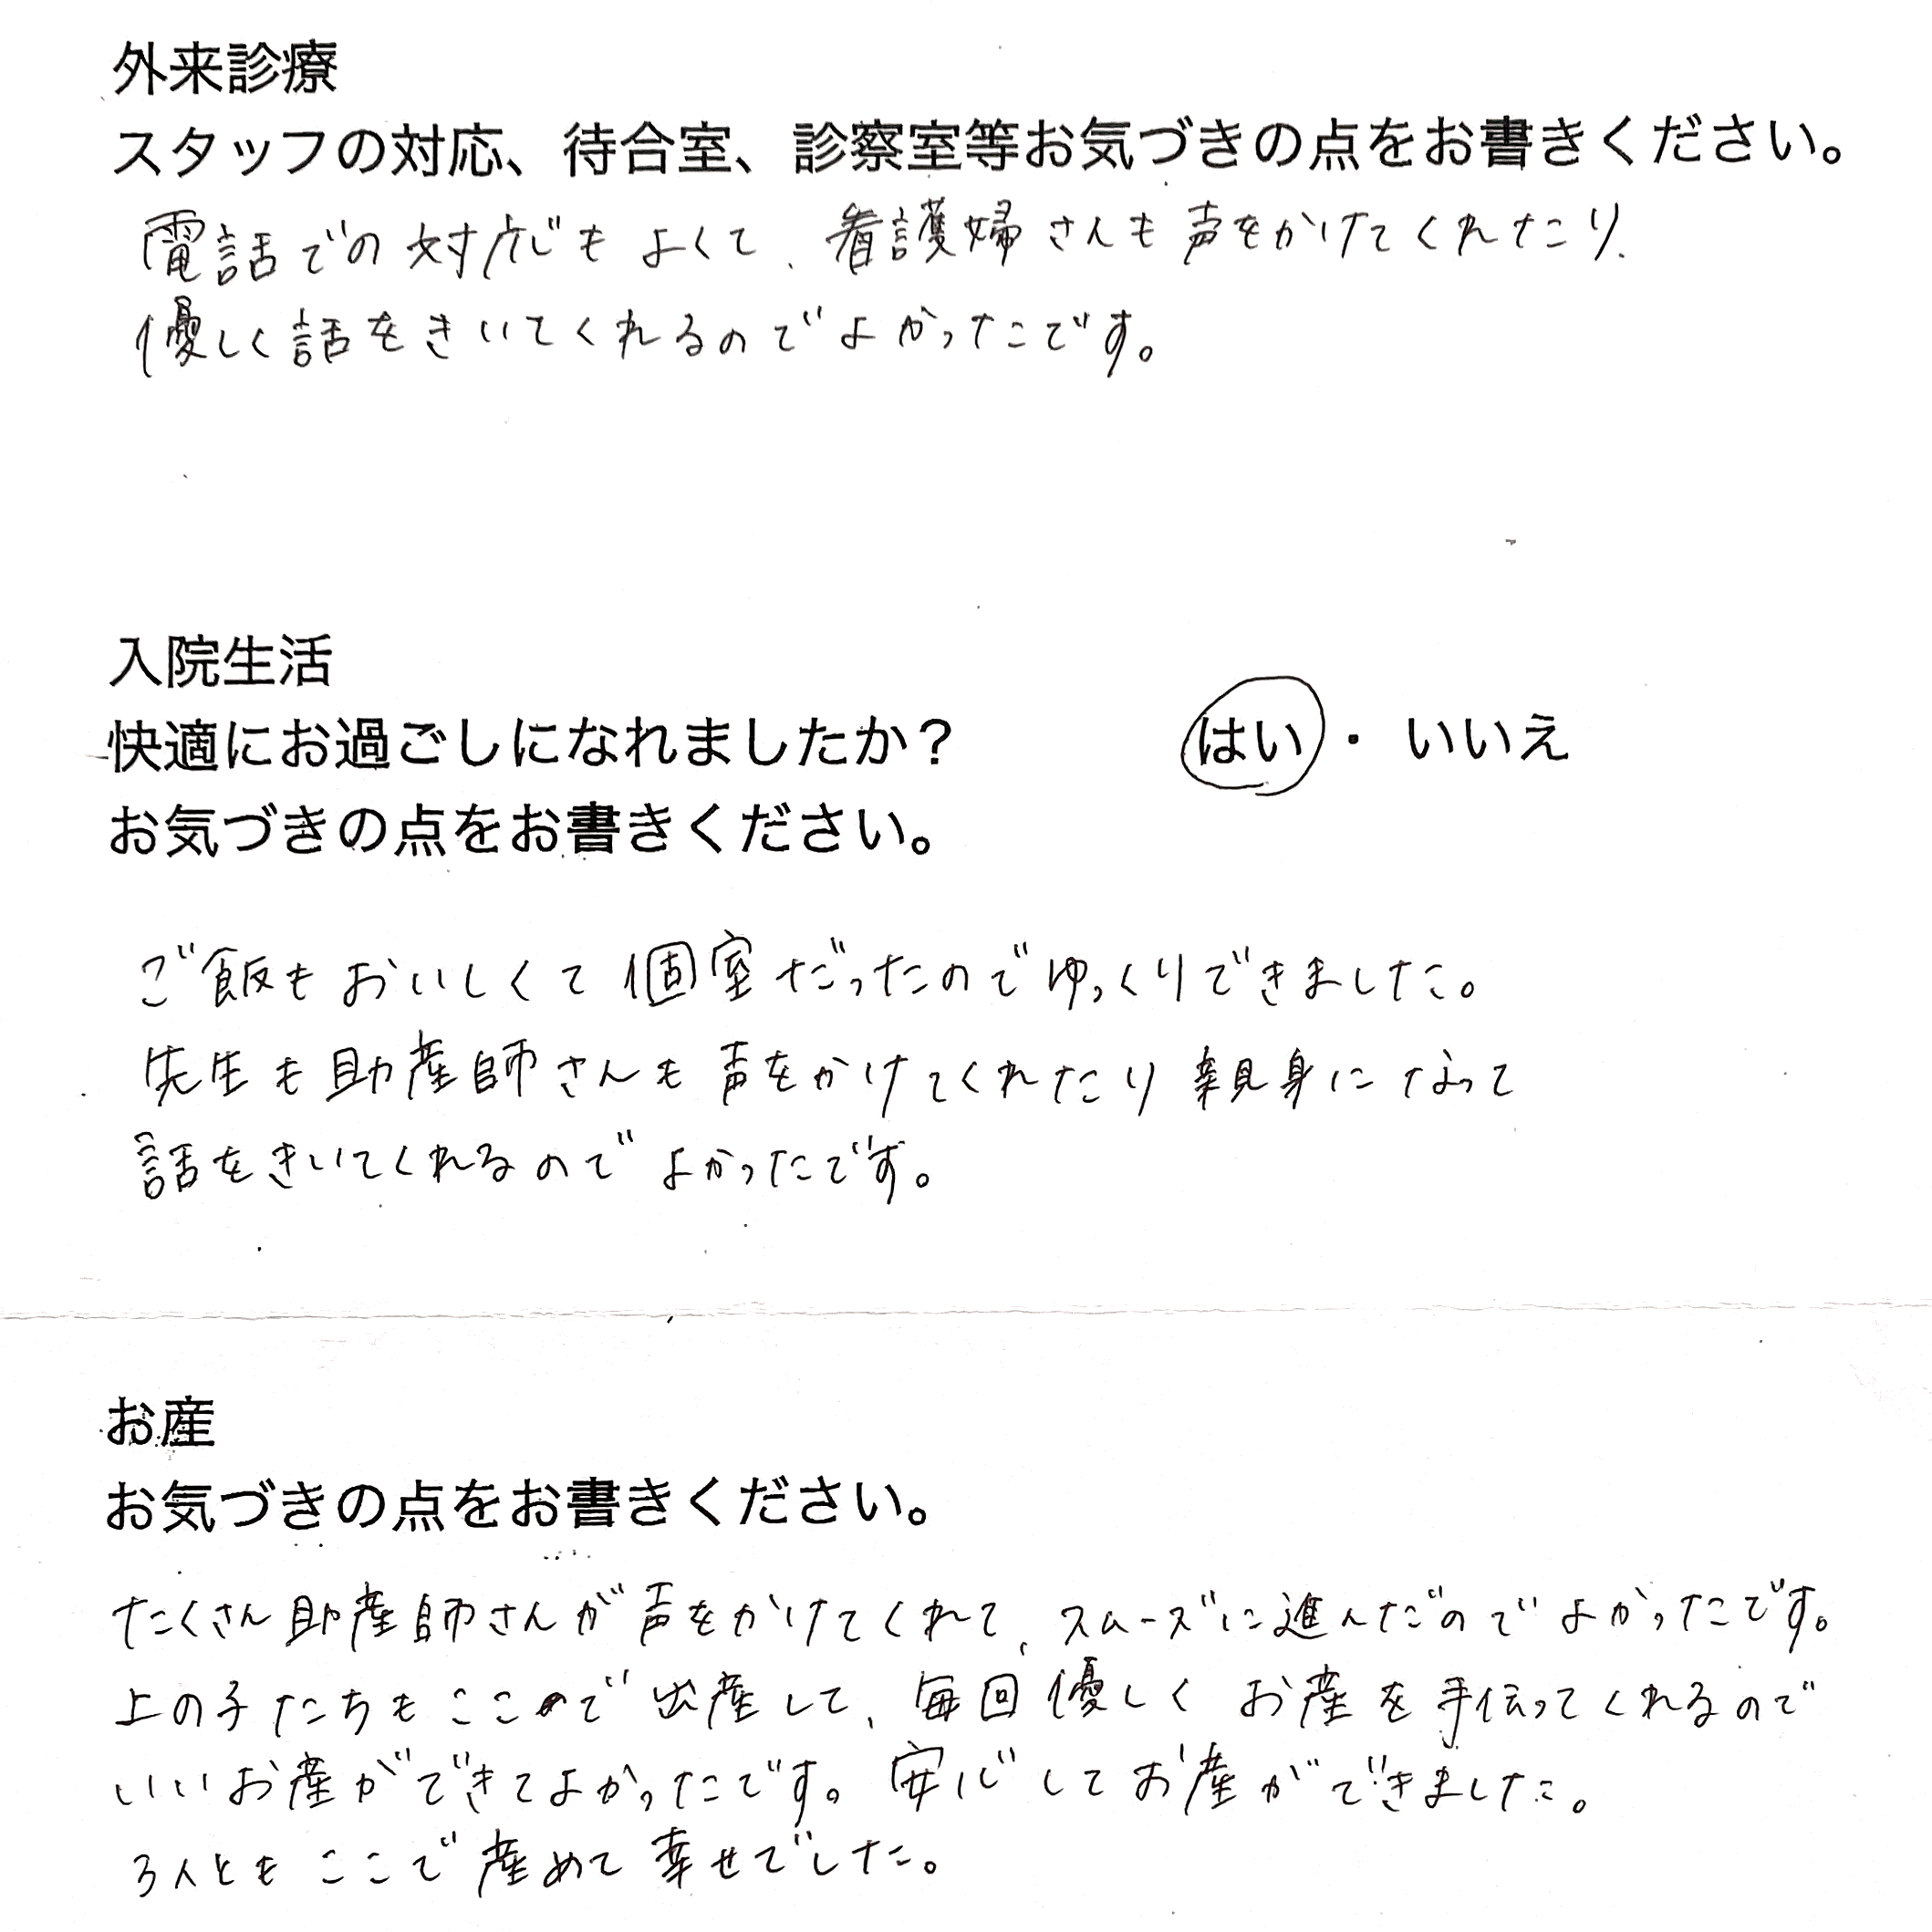 外来診療
スタッフの対応、待合室、診察室等お気づきの点をお書きください。
電話での対応もよくて、看護婦さんも声をかけてくれたり、
優しく話をきいてくれるのでよかったです。
入院生活
快適にお過ごしになれましたか？ はい・いいえ
お気づきの点をお書きください。
ご飯もおいしくて個室だったのでゆっくりできました。
先生も助産師さんも声をかけてくれたり親身になって
話をきいてくれるのでよかったです。
お産
お気づきの点をお書きください。
たくさん助産師さんが声をかけてくれて、スムーズに進んだのでよかったです。
上の子たちもここで出産して、毎回優しくお産を手伝ってくれるので
いいお産ができてよかったです。安心してお産ができました。
3人ともここで産めて幸せでした。